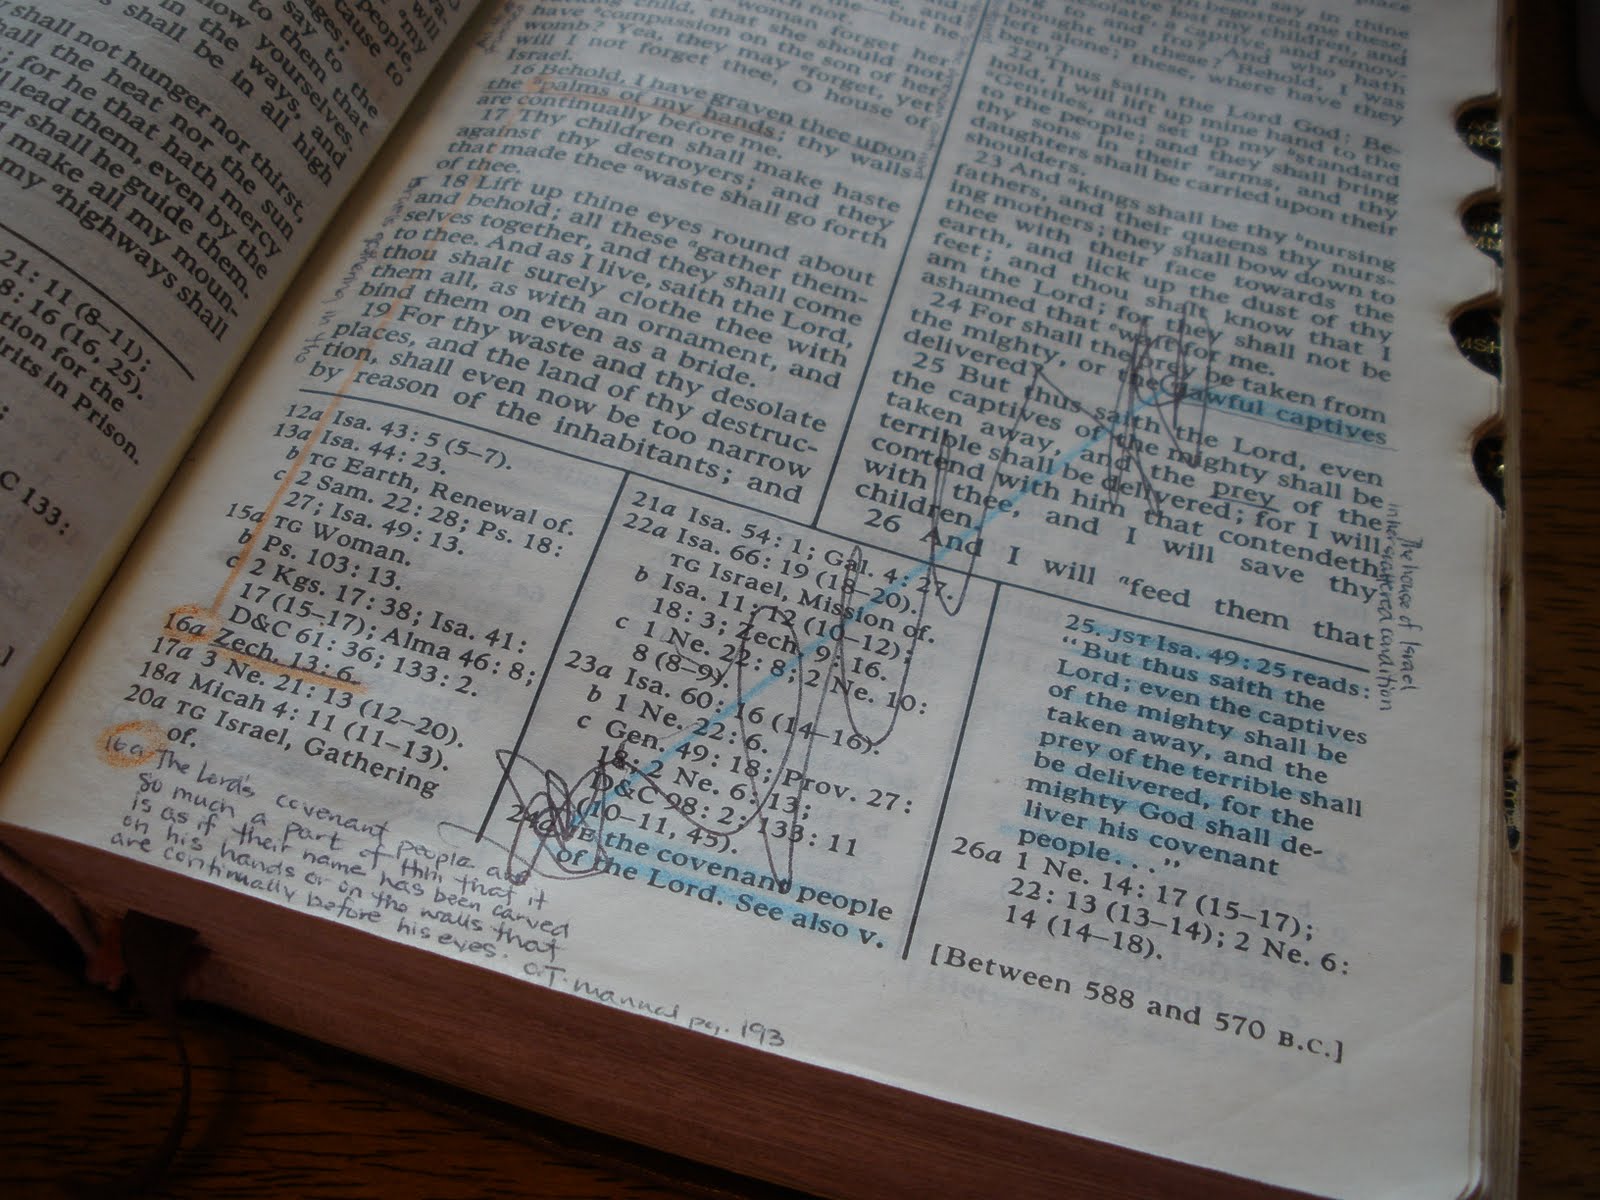 will
"my
people,
cause to
ages;
say to
to them that
how yourselves.
in the ways, and
s shall be in all high
shall not hunger nor thirst,
shall the heat nor the sun
; for he that hath mercy
ll lead them, even by the
er shall he guide them.
make all my moun-
my ahighways shall
21: 11 (8–11);
8: 16 (16, 25).
tion for the
irits in Prison.
C 133:
woman forget her
child, that she should not
have compassion on the son of her
womb? Yea, they may forget, yet
will I not forget thee, O house of
Israel.
16 Behold, I have graven thee upon
the palms of my hands;
are continually before me. thy walls
17 Thy children shall make haste
against thy destroyers; and they
that made thee awaste shall go forth
of thee.
18 Lift up thine eyes round about
and behold; all these agather them-
selves together, and they shall come
to thee. And as I live, saith the Lord,
thou shalt surely clothe thee with
them all, as with an ornament, and
bind them on even as a bride.
19 For thy waste and thy desolate
places, and the land of thy destruc-
tion, shall even now be too narrow
by reason of the inhabitants; and
12a Isa. 43: 5 (5–7).
13a Isa. 44: 23.
b TG Earth, Renewal of.
c 2 Sam. 22: 28; Ps. 18:
27; Isa. 49: 13.
15a TG Woman.
b Ps. 103: 13.
c 2 Kgs. 17: 38; Isa. 41:
17 (15–17); Alma 46: 8;
D&C 61: 36; 133: 2.
16a Zech. 13: 6.
17a 3 Ne. 21: 13 (12–20).
18a Micah 4: 11 (11–13).
20a TG Israel, Gathering
of.
16a The Lord's covenant people are
so much a part of him that it
is as if their name has been carved
on his hands or on the walls that
are continually before his eyes. O.T. manual pg. 193
say in thine
begotten me these,
have lost my children, and
desolate, a captive, and remov-
ing to and fro? And who hath
brought up these? Behold, I was
left alone; these, where have they
been?
22 Thus saith the Lord God: Be-
hold, I will lift up mine hand to the
aGentiles, and set up my bstandard
to the people; and they shall bring
thy sons in their carms, and thy
daughters shall be carried upon their
shoulders.
23 And akings shall be thy bnursing
fathers, and their queens thy nurs-
ing mothers; they shall bow down to
thee with their face towards the
earth, and lick up the dust of thy
feet; and thou shalt know that I
am the Lord; for they shall not be
ashamed that cwait for me.
24 For shall the prey be taken from
the mighty, or the alawful captives
delivered?
25 But thus saith the Lord, even
the captives of the mighty shall be
taken away, and the prey of the
terrible shall be delivered; for I will
contend with him that contendeth
with thee, and I will save thy
children.
26 And I will afeed them that
The house of Israel
in her scattered condition
21a Isa. 54: 1; Gal. 4: 27.
22a Isa. 66: 19 (18–20).
TG Israel, Mission of.
b Isa. 11: 12 (10–12);
18: 3; Zech. 9: 16.
c 1 Ne. 22: 8; 2 Ne. 10:
8 (8–9).
23a Isa. 60: 16 (14–16).
b 1 Ne. 22: 6.
c Gen. 49: 18; Prov. 27:
18; 2 Ne. 6: 13;
D&C 98: 2; 133: 11
(10–11, 45).
24a IE the covenant people
of the Lord. See also v.
25. JST Isa. 49: 25 reads:
"But thus saith the
Lord; even the captives
of the mighty shall be
taken away, and the
prey of the terrible shall
be delivered, for the
mighty God shall de-
liver his covenant
people. . ."
26a 1 Ne. 14: 17 (15–17);
22: 13 (13–14); 2 Ne. 6:
14 (14–18).
[Between 588 and 570 B.C.]